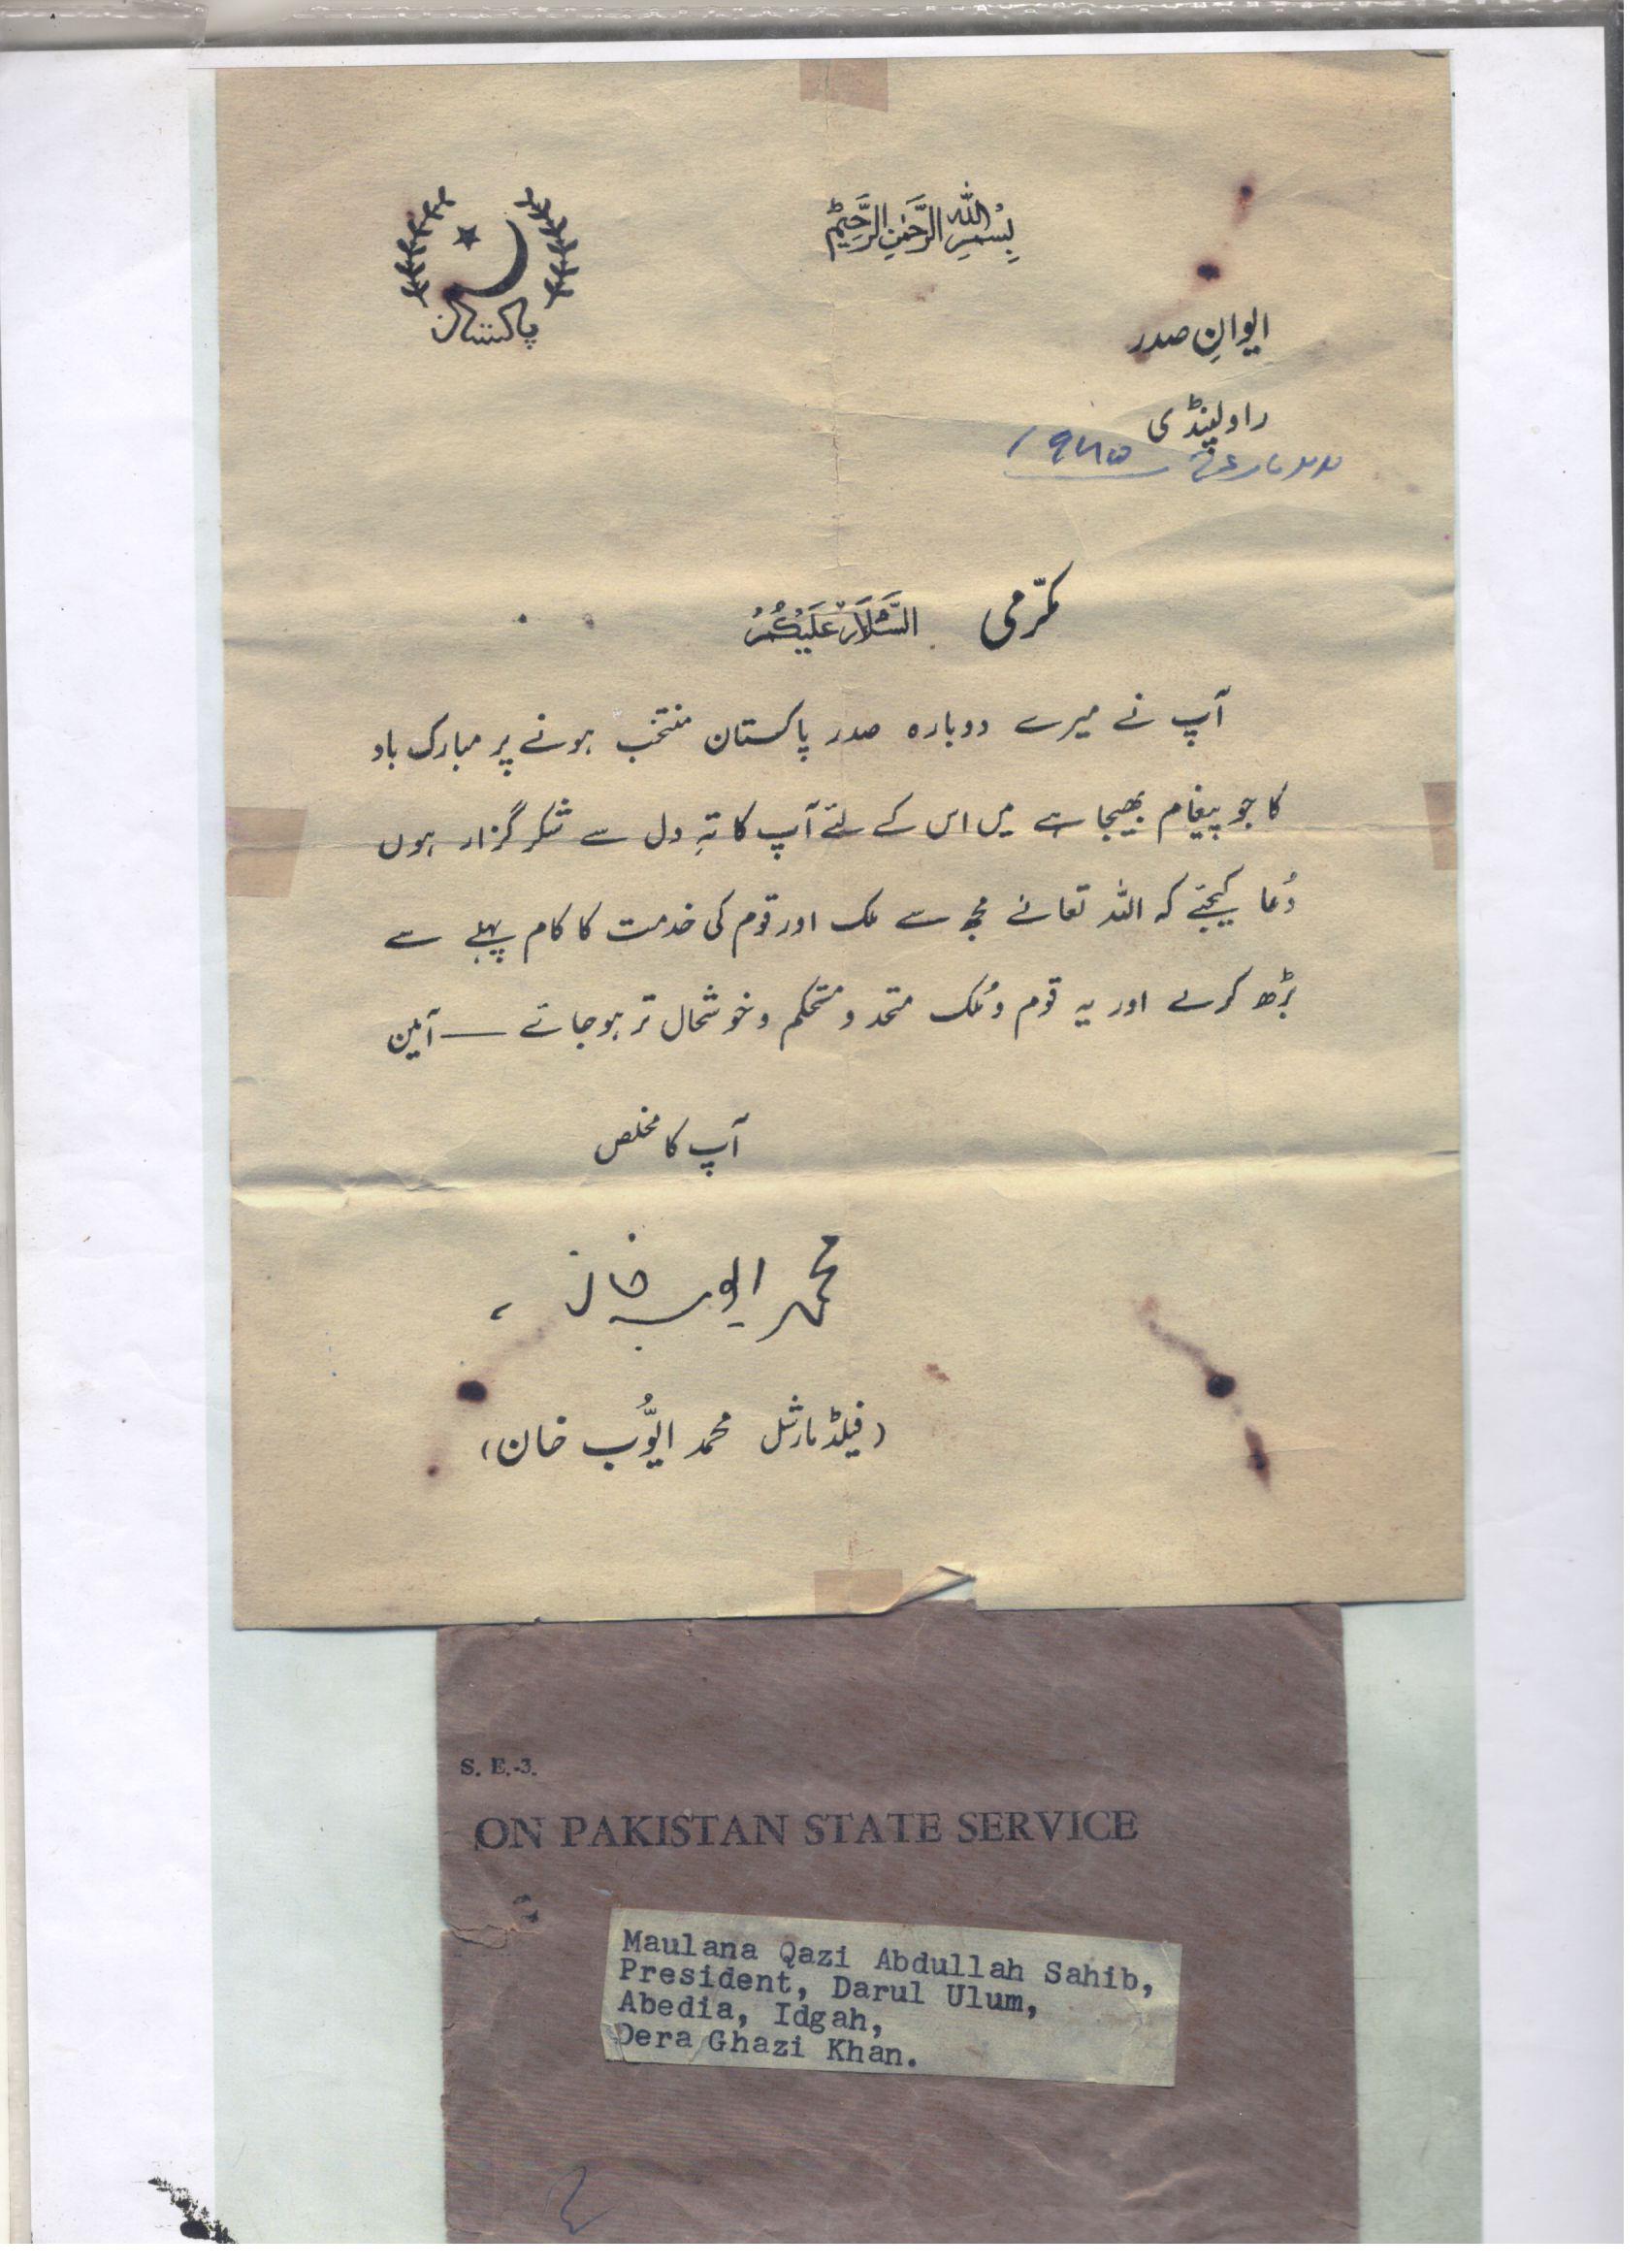 بِسْمِ اللهِ الرَّحْمٰنِ الرَّحِيْمِ
پاکستان
ایوانِ صدر
راولپنڈی
۲۲ مارچ ۱۹۶۵
مکرّمی السَّلَامُ عَلَيْكُمْ
آپ نے میرے دوبارہ صدر پاکستان منتخب ہونے پر مبارک باد
کا جو پیغام بھیجا ہے میں اس کے لئے آپ کا تہِ دل سے شکر گزار ہوں
دُعا کیجئے کہ اللہ تعالےٰ مجھ سے ملک اور قوم کی خدمت کا کام پہلے سے
بڑھ کر لے اور یہ قوم و مُلک متحد و مستحکم و خوشحال تر ہو جائے — آمین
آپ کا مخلص
محمد ایوب خان
(فیلڈ مارشل محمد ایُّوب خان)
S. E.-3.
ON PAKISTAN STATE SERVICE
Maulana Qazi Abdullah Sahib,
President, Darul Ulum,
Abedia, Idgah,
Dera Ghazi Khan.